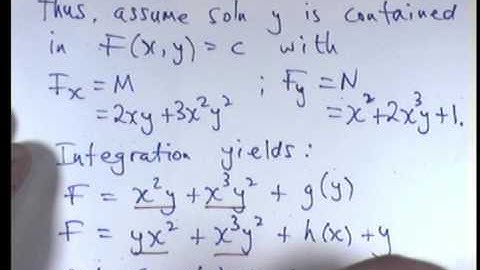 Thus, assume soln y is contained
in F(x,y) = c with
Fₓ = M ; Fᵧ = N
= 2xy + 3x²y² = x² + 2x³y + 1.
Integration yields:
F = x²y + x³y² + g(y)
F = yx² + x³y² + h(x) + y